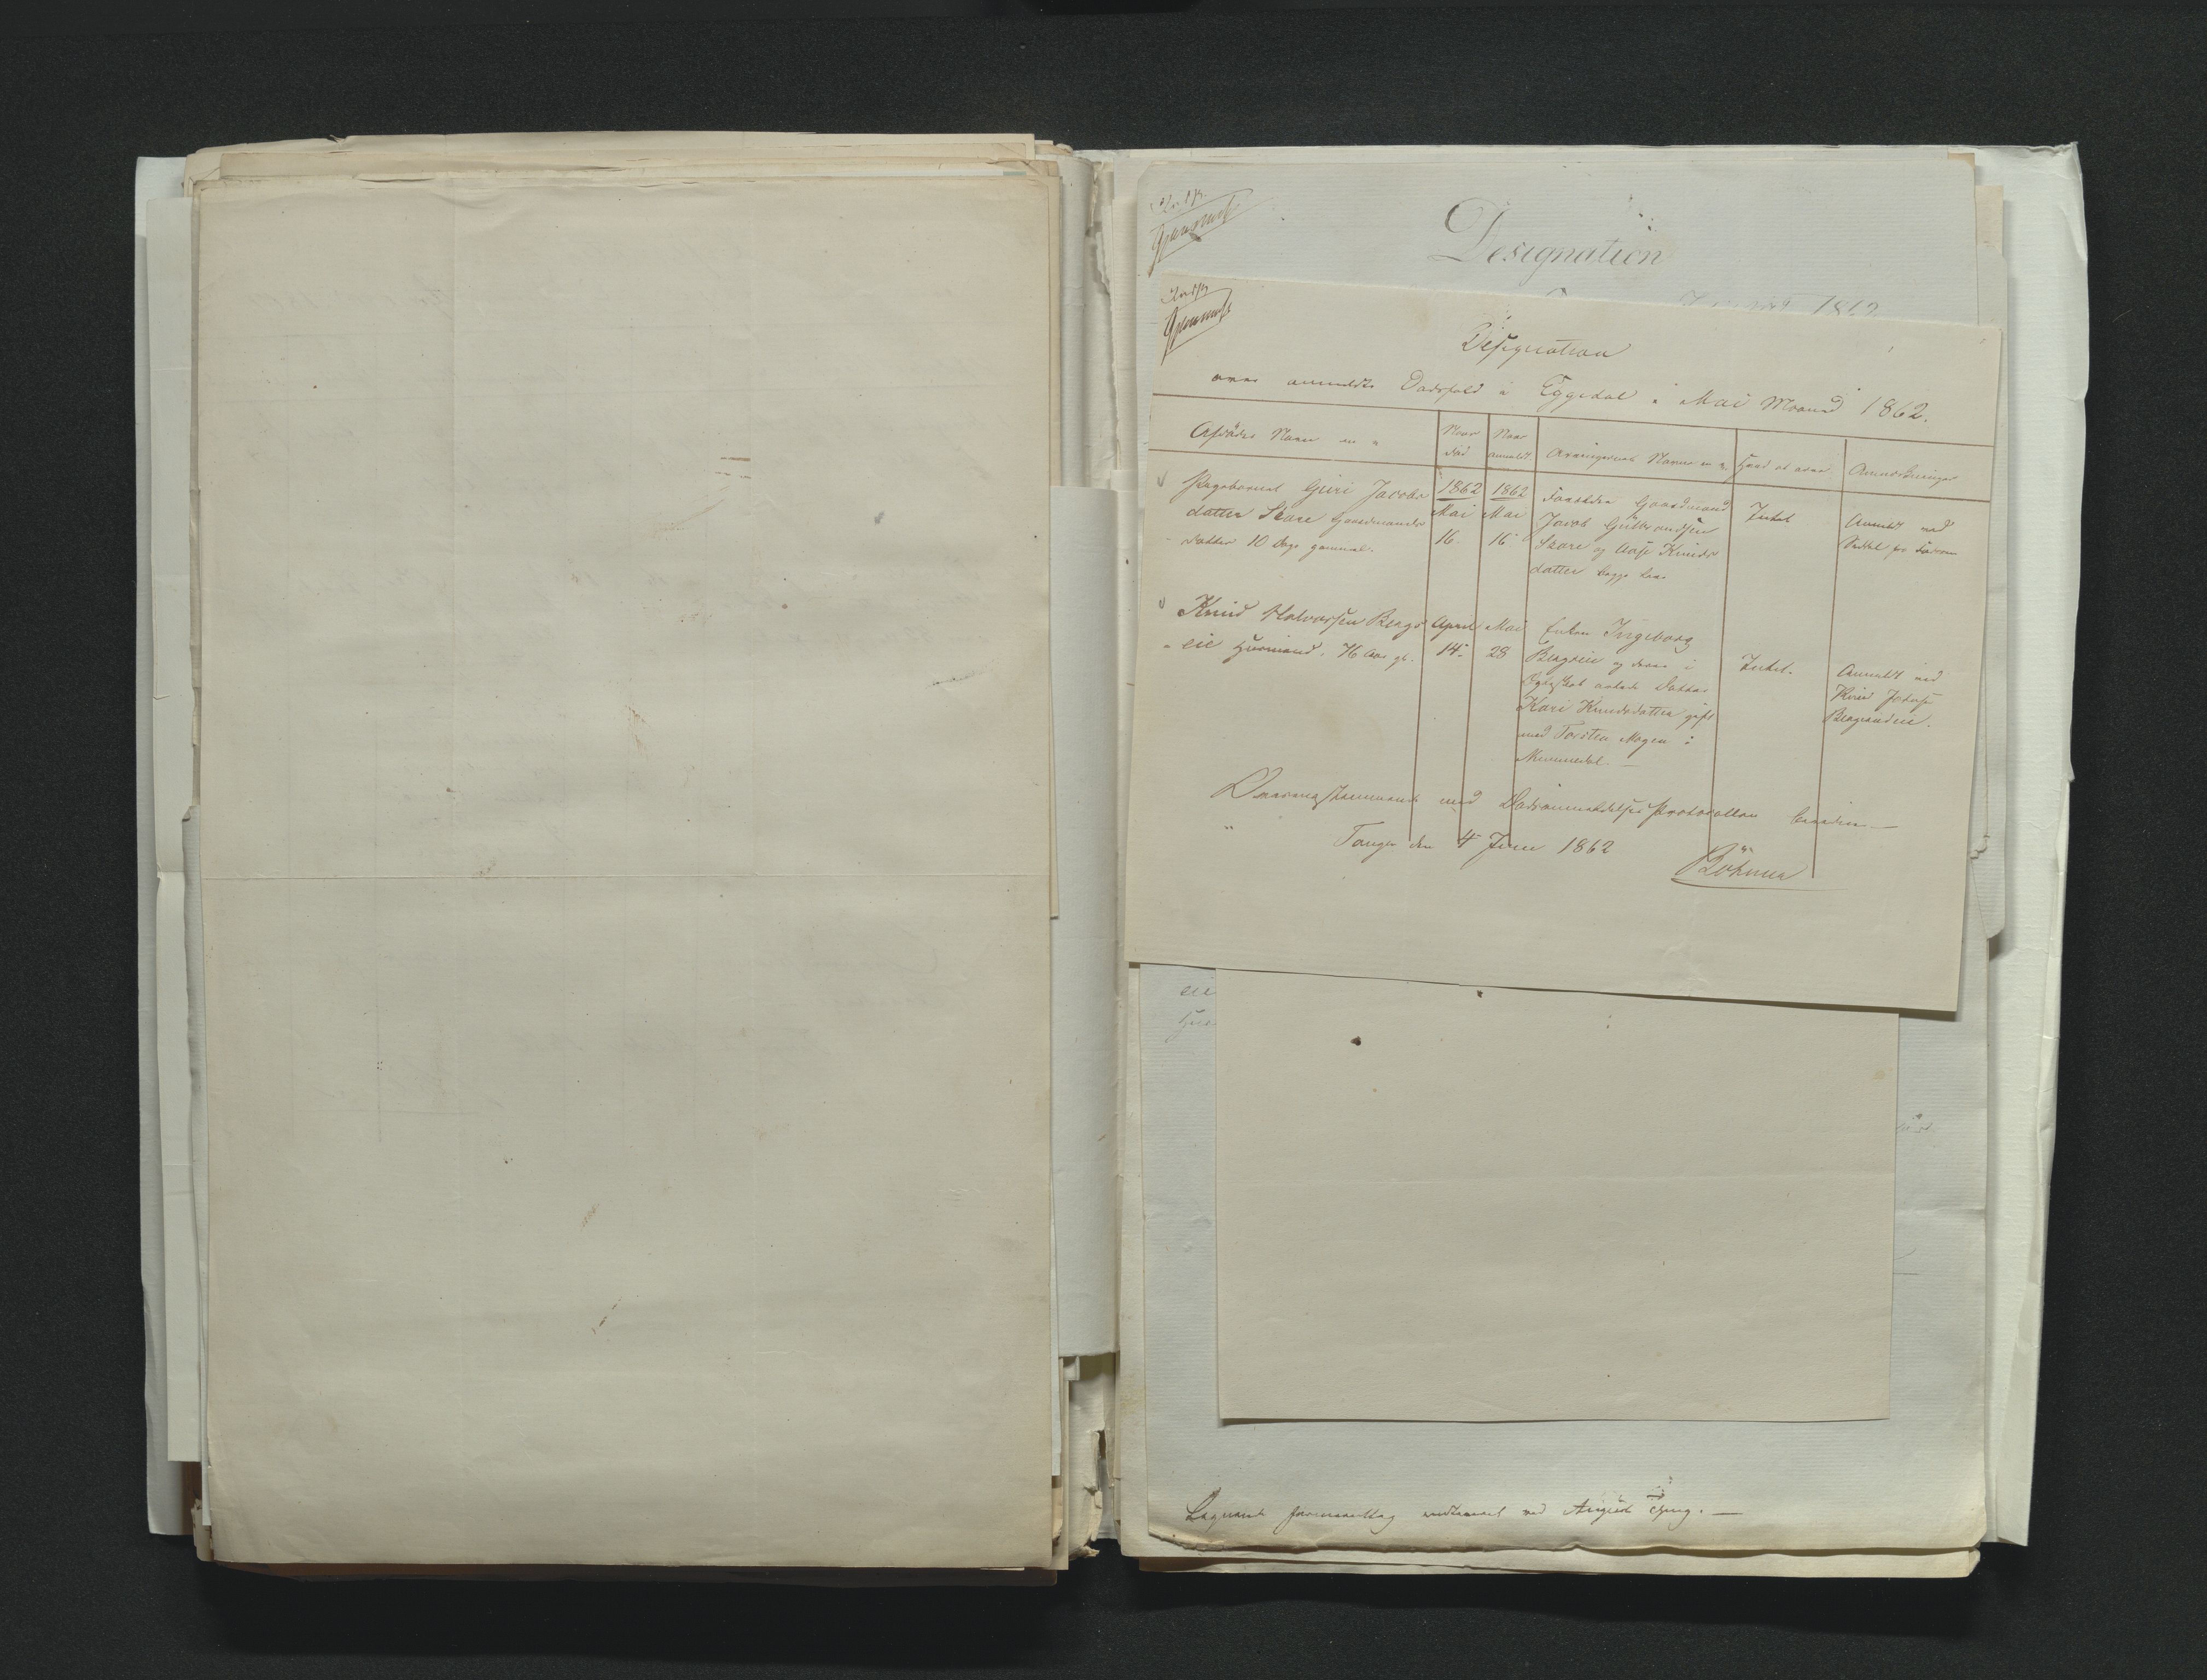 Designation
1862
Designation
over anmeldte Dødsfald i Eggedal i Mai Maaned 1862.
Afdødes Navn
Naar død
Naar anmeldt
Arvingernes Navne
Hvad at arve
Anmærkninger
Pigebarnet Guri Jacobs
datter Skare Gaardmands
datter 10 dage gammel.
1862
Mai
16.
1862
Mai
16
Forældre Gaardmand
Jacob Gulbrandsen
Skare og Aase Knuds
datter begge
Intet
Anmeldt ved
Seddel fra Faderen
Knud Halvorsen Bergs
eie Huusmand, 76 Aar gl.
April
14.
Mai
28
Enken Ingeborg
Bergseie og deres i
Ægteskab avlede Datter
Kari Knudsdatter gift
med Torsten Mogen i
Nummedal. —
Intet.
Anmeldt ved
Knud
Overensstemmende med Dødsanmeldelses Protocollen bevidnes —
Tangen den 4 Juni 1862
Böhmer
eie
Huus
ved August Thing. —